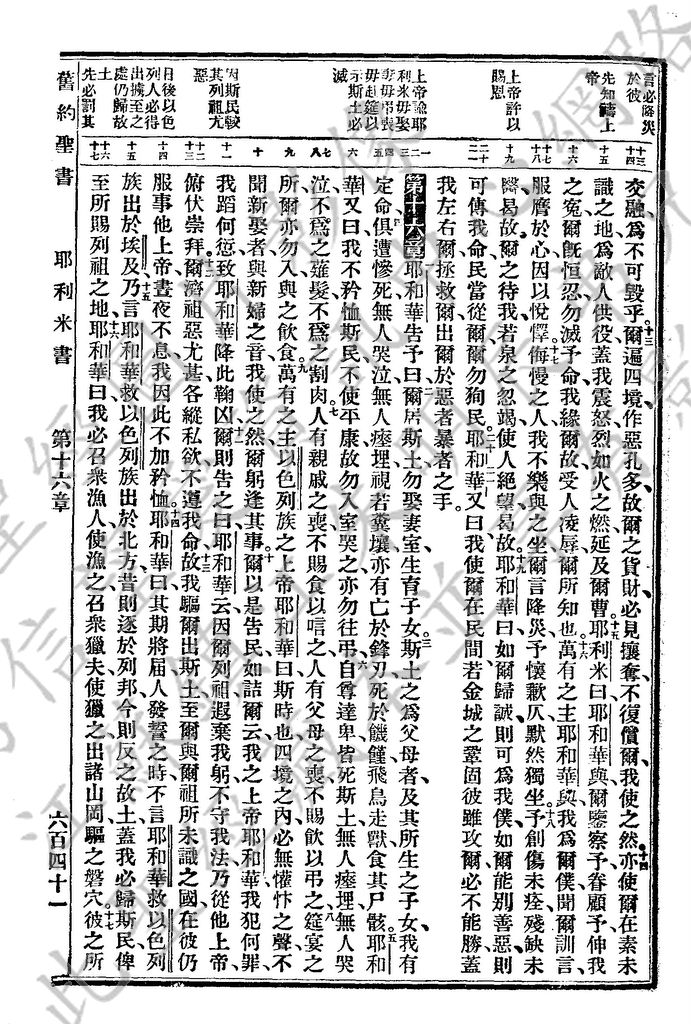 言必降災
於彼
先知禱上
帝
上帝許以
賜恩
上帝諭耶
利米毋娶
妻毋弔喪
毋赴筵以
示斯土必
滅
因斯民較
其列祖尤
惡
日後以色
列人必得
出擄至之
處仍歸故
土
先必罰其
交融爲不可毀乎十三爾遍四境作惡孔多故爾之貨財必見攘奪不復償爾我使之然十四亦使爾在素未
識之地爲敵人供役蓋我震怒烈如火之燃延及爾曹十五耶利米曰耶和華與爾鑒察予眷顧予伸我
之寃爾既恒忍勿滅予命我緣爾故受人凌辱爾所知也十六萬有之主耶和華與我爲爾僕聞爾訓言
服膺於心因以悅懌十七侮慢之人我不樂與之坐爾言降災予懷歉仄默然獨坐十八予創傷未痊殘缺未
醫曷故爾之待我若泉之忽竭使人絕望曷故十九耶和華曰如爾歸誠則可爲我僕如爾能別善惡則
可傳我命民當從爾爾勿狥民二十耶和華又曰我使爾在民間若金城之鞏固彼雖攻爾必不能勝蓋
我左右爾拯救爾二一出爾於惡者暴者之手
第十六章一耶和華告予曰二爾居斯土勿娶妻室生育子女三斯土之爲父母者及其所生之子女我有
定命四俱遭慘死無人哭泣無人瘞埋視若糞壤亦有亡於鋒刃死於饑饉飛鳥走獸食其尸骸五耶和
華又曰我不矜恤斯民不使平康故勿入室哭之亦勿往弔六自尊達卑皆死斯土無人瘞埋無人哭
泣不爲之薙髮不爲之割肉七人有親戚之喪不賜食以唁之人有父母之喪不賜飲以弔之八筵宴之
所爾亦勿入與之飲食九萬有之主以色列族之上帝耶和華曰斯時也四境之內必無懽忭之聲不
聞新娶者與新婦之音我使之然爾躬逢其事十爾以是告民如詰爾云我之上帝耶和華我犯何罪
我蹈何愆致耶和華降此鞠凶十一爾則告之曰耶和華云因爾列祖遐棄我躬不守我法乃從他上帝
俯伏崇拜十二爾濟祖惡尤甚各縱私欲不遵我命十三故我驅爾出斯土至爾與爾祖所未識之國在彼仍
服事他上帝晝夜不息我因此不加矜恤十四耶和華曰其期將届人發誓之時不言耶和華救以色列
族出於埃及十五乃言耶和華救以色列族出於北方昔則逐於列邦今則反之故土蓋我必歸斯民俾
至所賜列祖之地十六耶和華曰我必召衆漁人使漁之召衆獵夫使獵之出諸山岡驅之磐穴十七彼之所
舊約聖書　耶利米書　第十六章　六百四十一